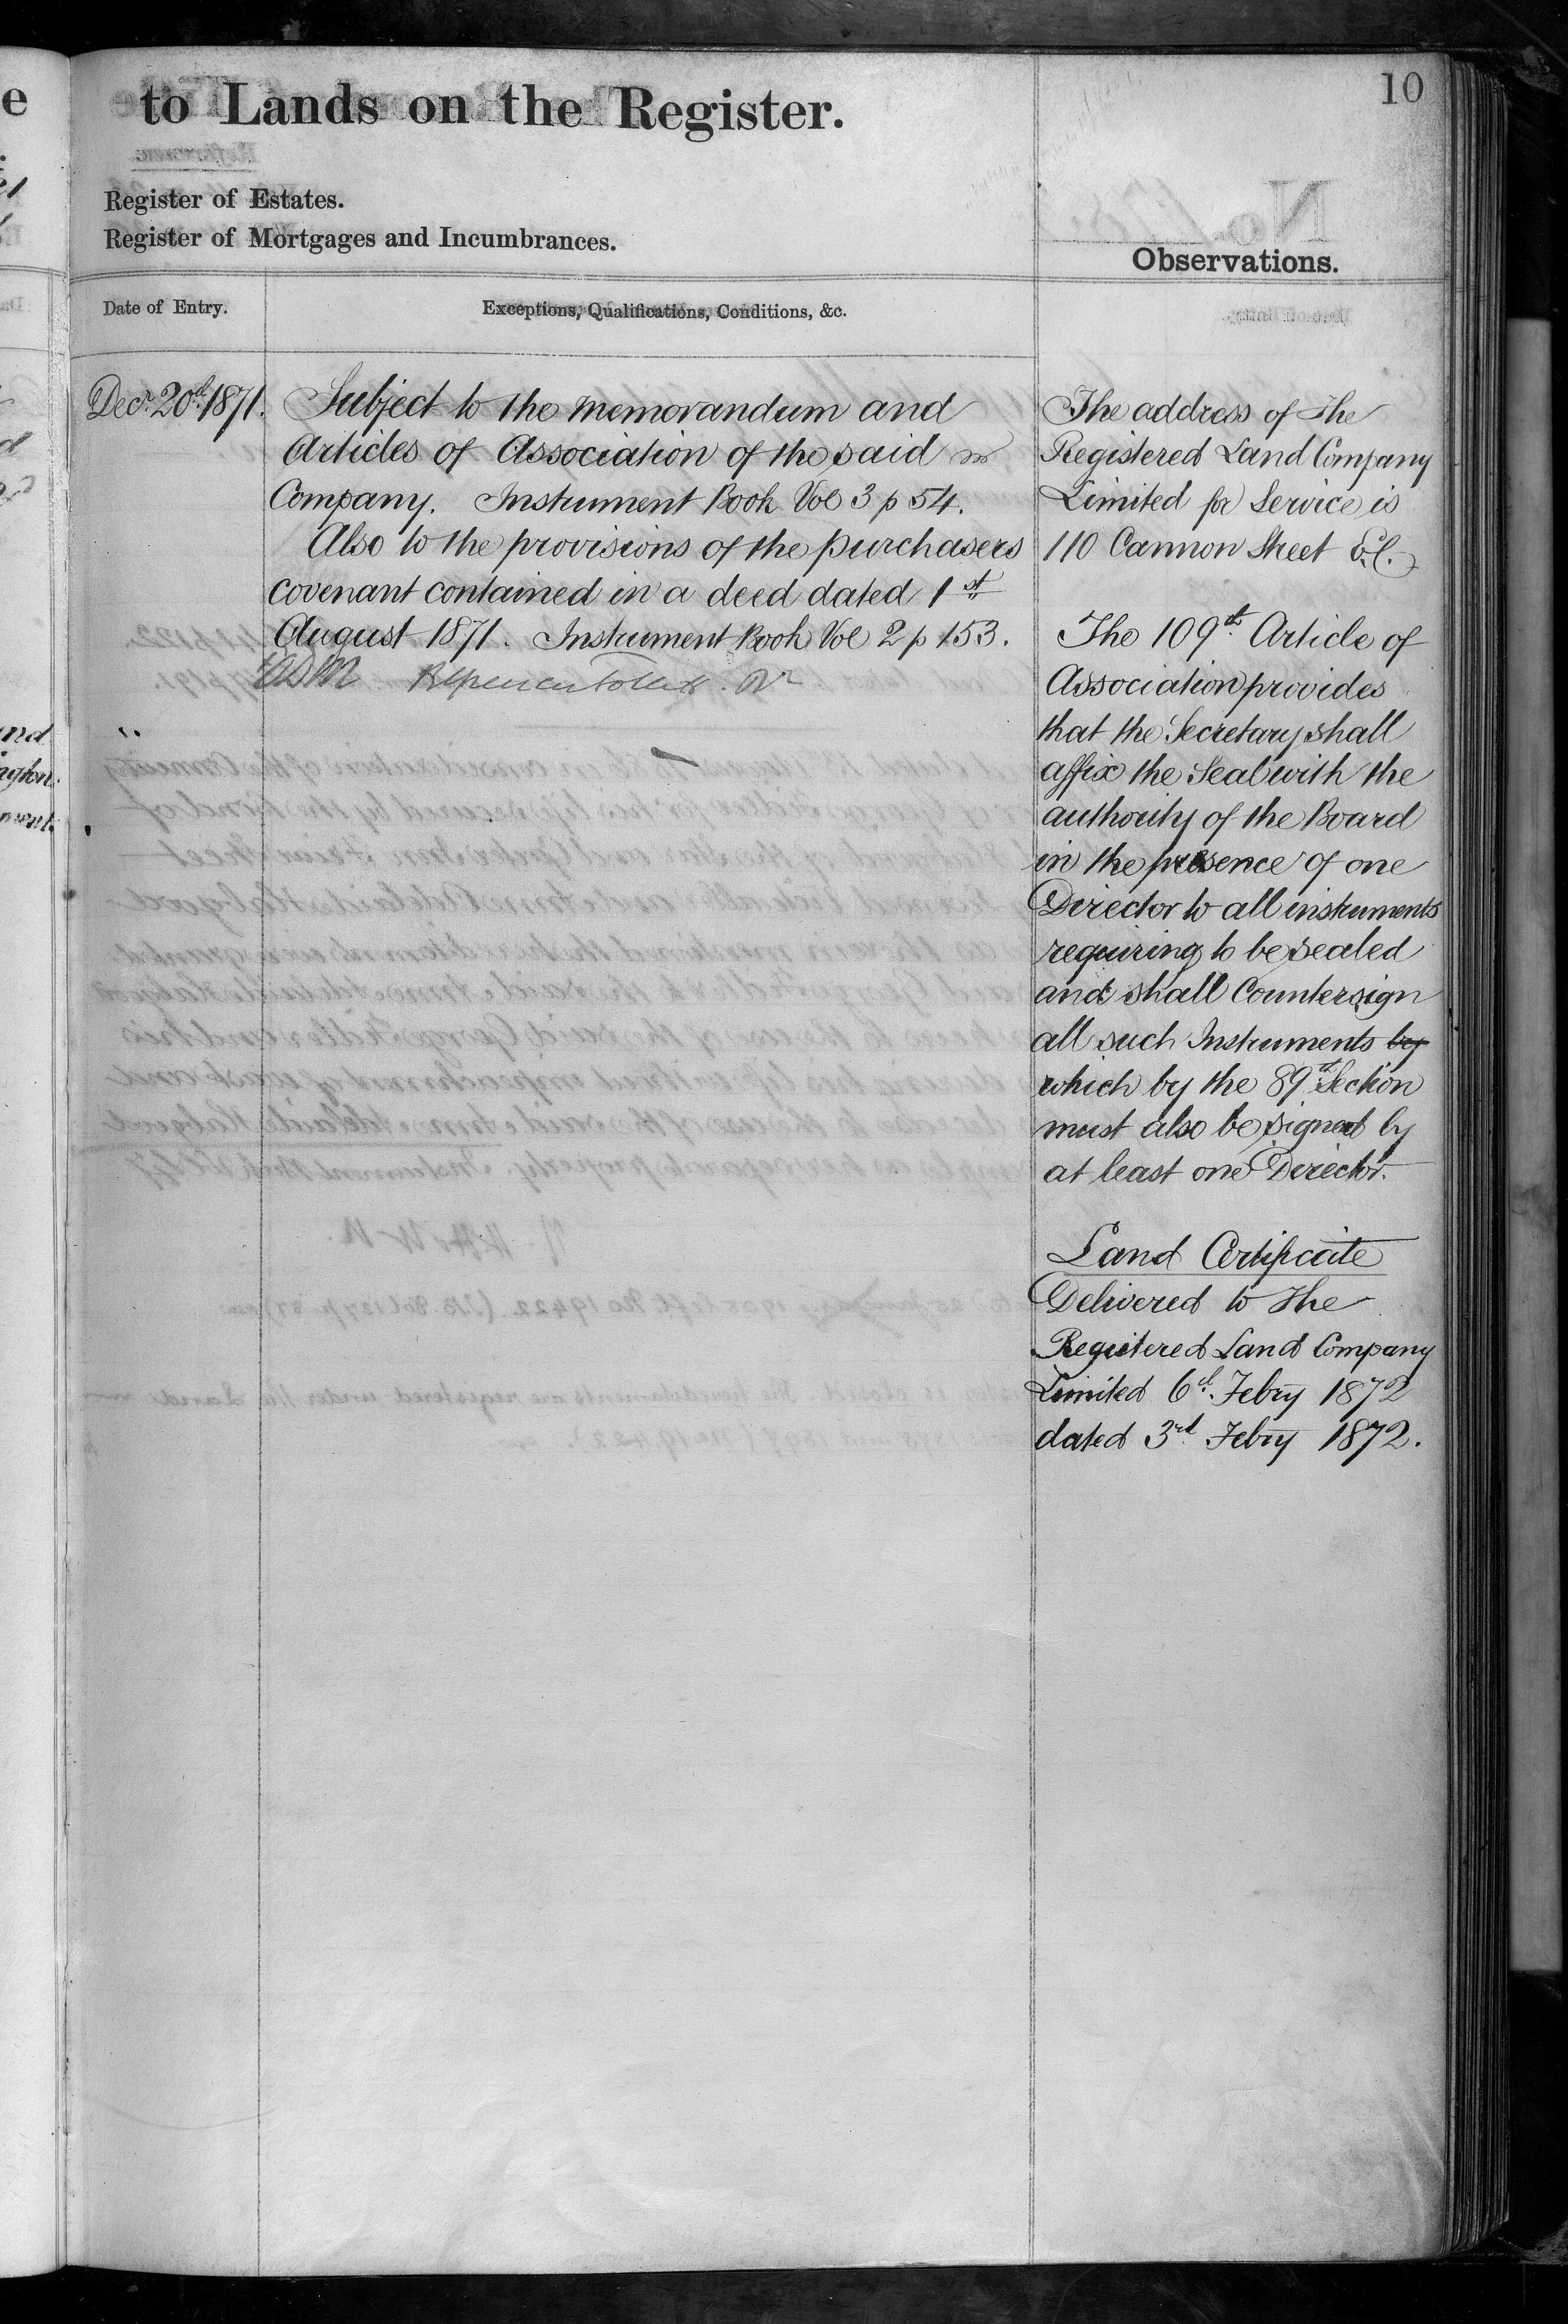 10
to Lands on the Register.
Register of Estates.
Register of Mortgages and Incumbrances.
Observations.
Date of Entry.
Exceptions, Qualifications, Conditions, &c.
Decr. 20th 1871.
Subject to the Memorandum and
Articles of Association of the said
Company. Instrument Book Vol 3 p 54.
Also to the provisions of the purchasers
covenant contained in a deed dated 1st
August 1871. Instrument Book Vol 2 p 153.
The address of the
Registered Land Company
Limited for Service is
110 Cannon Street E.C.
The 109th Article of
Association provides
that the Secretary shall
affix the Seal with the
authority of the Board
in the presence of one
Director to all instruments
requiring to be sealed
and shall Countersign
all such Instruments by
which by the 89th Section
must also be signed by
at least one Director.
Land Certificate
Delivered to the
Registered Land Company
Limited 6th Febry 1872
dated 3rd Febry 1872.